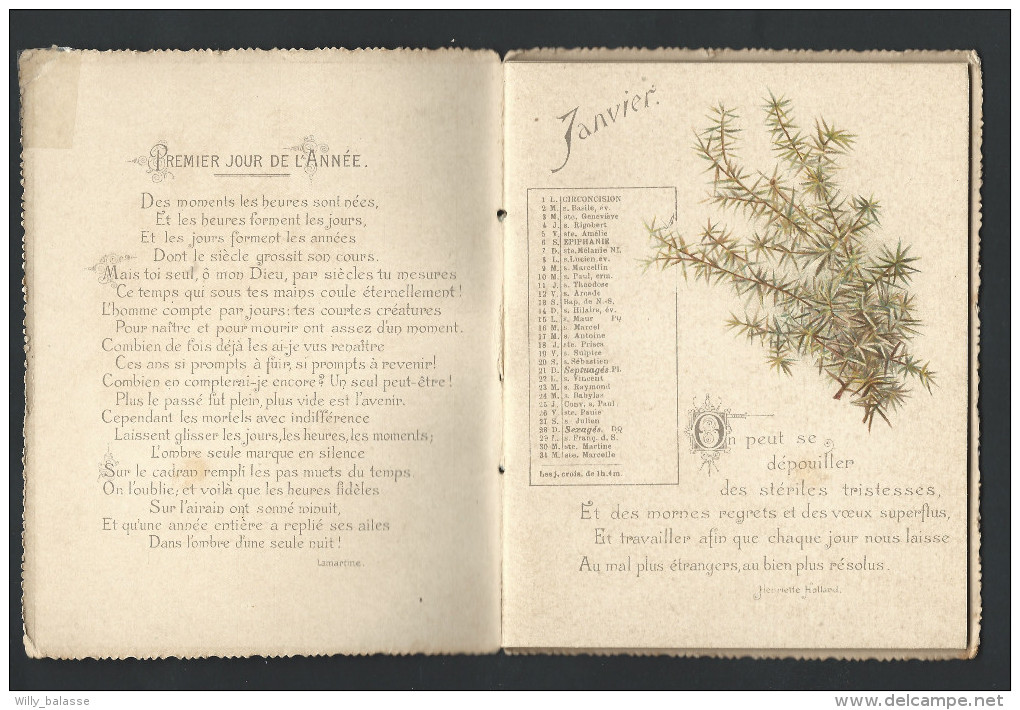 PREMIER JOUR DE L'ANNÉE.
Des moments les heures sont nées,
Et les heures forment les jours,
Et les jours forment les années
Dont le siècle grossit son cours.
Mais toi seul, ô mon Dieu, par siècles tu mesures
Ce temps qui sous tes mains coule éternellement!
L'homme compte par jours: tes courtes créatures
Pour naître et pour mourir ont assez d'un moment.
Combien de fois déjà les ai-je vus renaître
Ces ans si prompts à fuir, si prompts à revenir!
Combien en compterai-je encore? Un seul peut-être!
Plus le passé fut plein, plus vide est l'avenir.
Cependant les mortels avec indifférence
Laissent glisser les jours, les heures, les moments;
L'ombre seule marque en silence
Sur le cadran rempli les pas muets du temps.
On l'oublie; et voilà que les heures fidèles
Sur l'airain ont sonné minuit,
Et qu'une année entière a replié ses ailes
Dans l'ombre d'une seule nuit!
Lamartine.
Janvier.
1 L. CIRCONCISION
2 M. s. Basile, év.
3 M. ste. Geneviève
4 J. s. Rigobert
5 V. ste. Amélie
6 S. EPIPHANIE
7 D. ste. Mélanie NL
8 L. s. Lucien, év.
9 M. s. Marcellin
10 M. s. Paul, erm.
11 J. s. Théodose
12 V. s. Arcade
13 S. Bap. de N.-S.
14 D. s. Hilaire, év.
15 L. s. Maur PQ
16 M. s. Marcel
17 M. s. Antoine
18 J. ste. Prisca
19 V. s. Sulpice
20 S. s. Sébastien
21 D. Septuagés. PL
22 L. s. Vincent
23 M. s. Raymond
24 M. s. Babylas
25 J. Conv. s. Paul
26 V. ste. Paule
27 S. s. Julien
28 D. Sexagés. DQ
29 L. s. Franç. d. S.
30 M. ste. Martine
31 M. ste. Marcelle
Les j. crois. de 1h.4m.
On peut se
dépouiller
des stériles tristesses,
Et des mornes regrets et des vœux superflus,
Et travailler afin que chaque jour nous laisse
Au mal plus étrangers, au bien plus résolus.
Henriette Holland.
Willy_balasse
www.delcampe.net